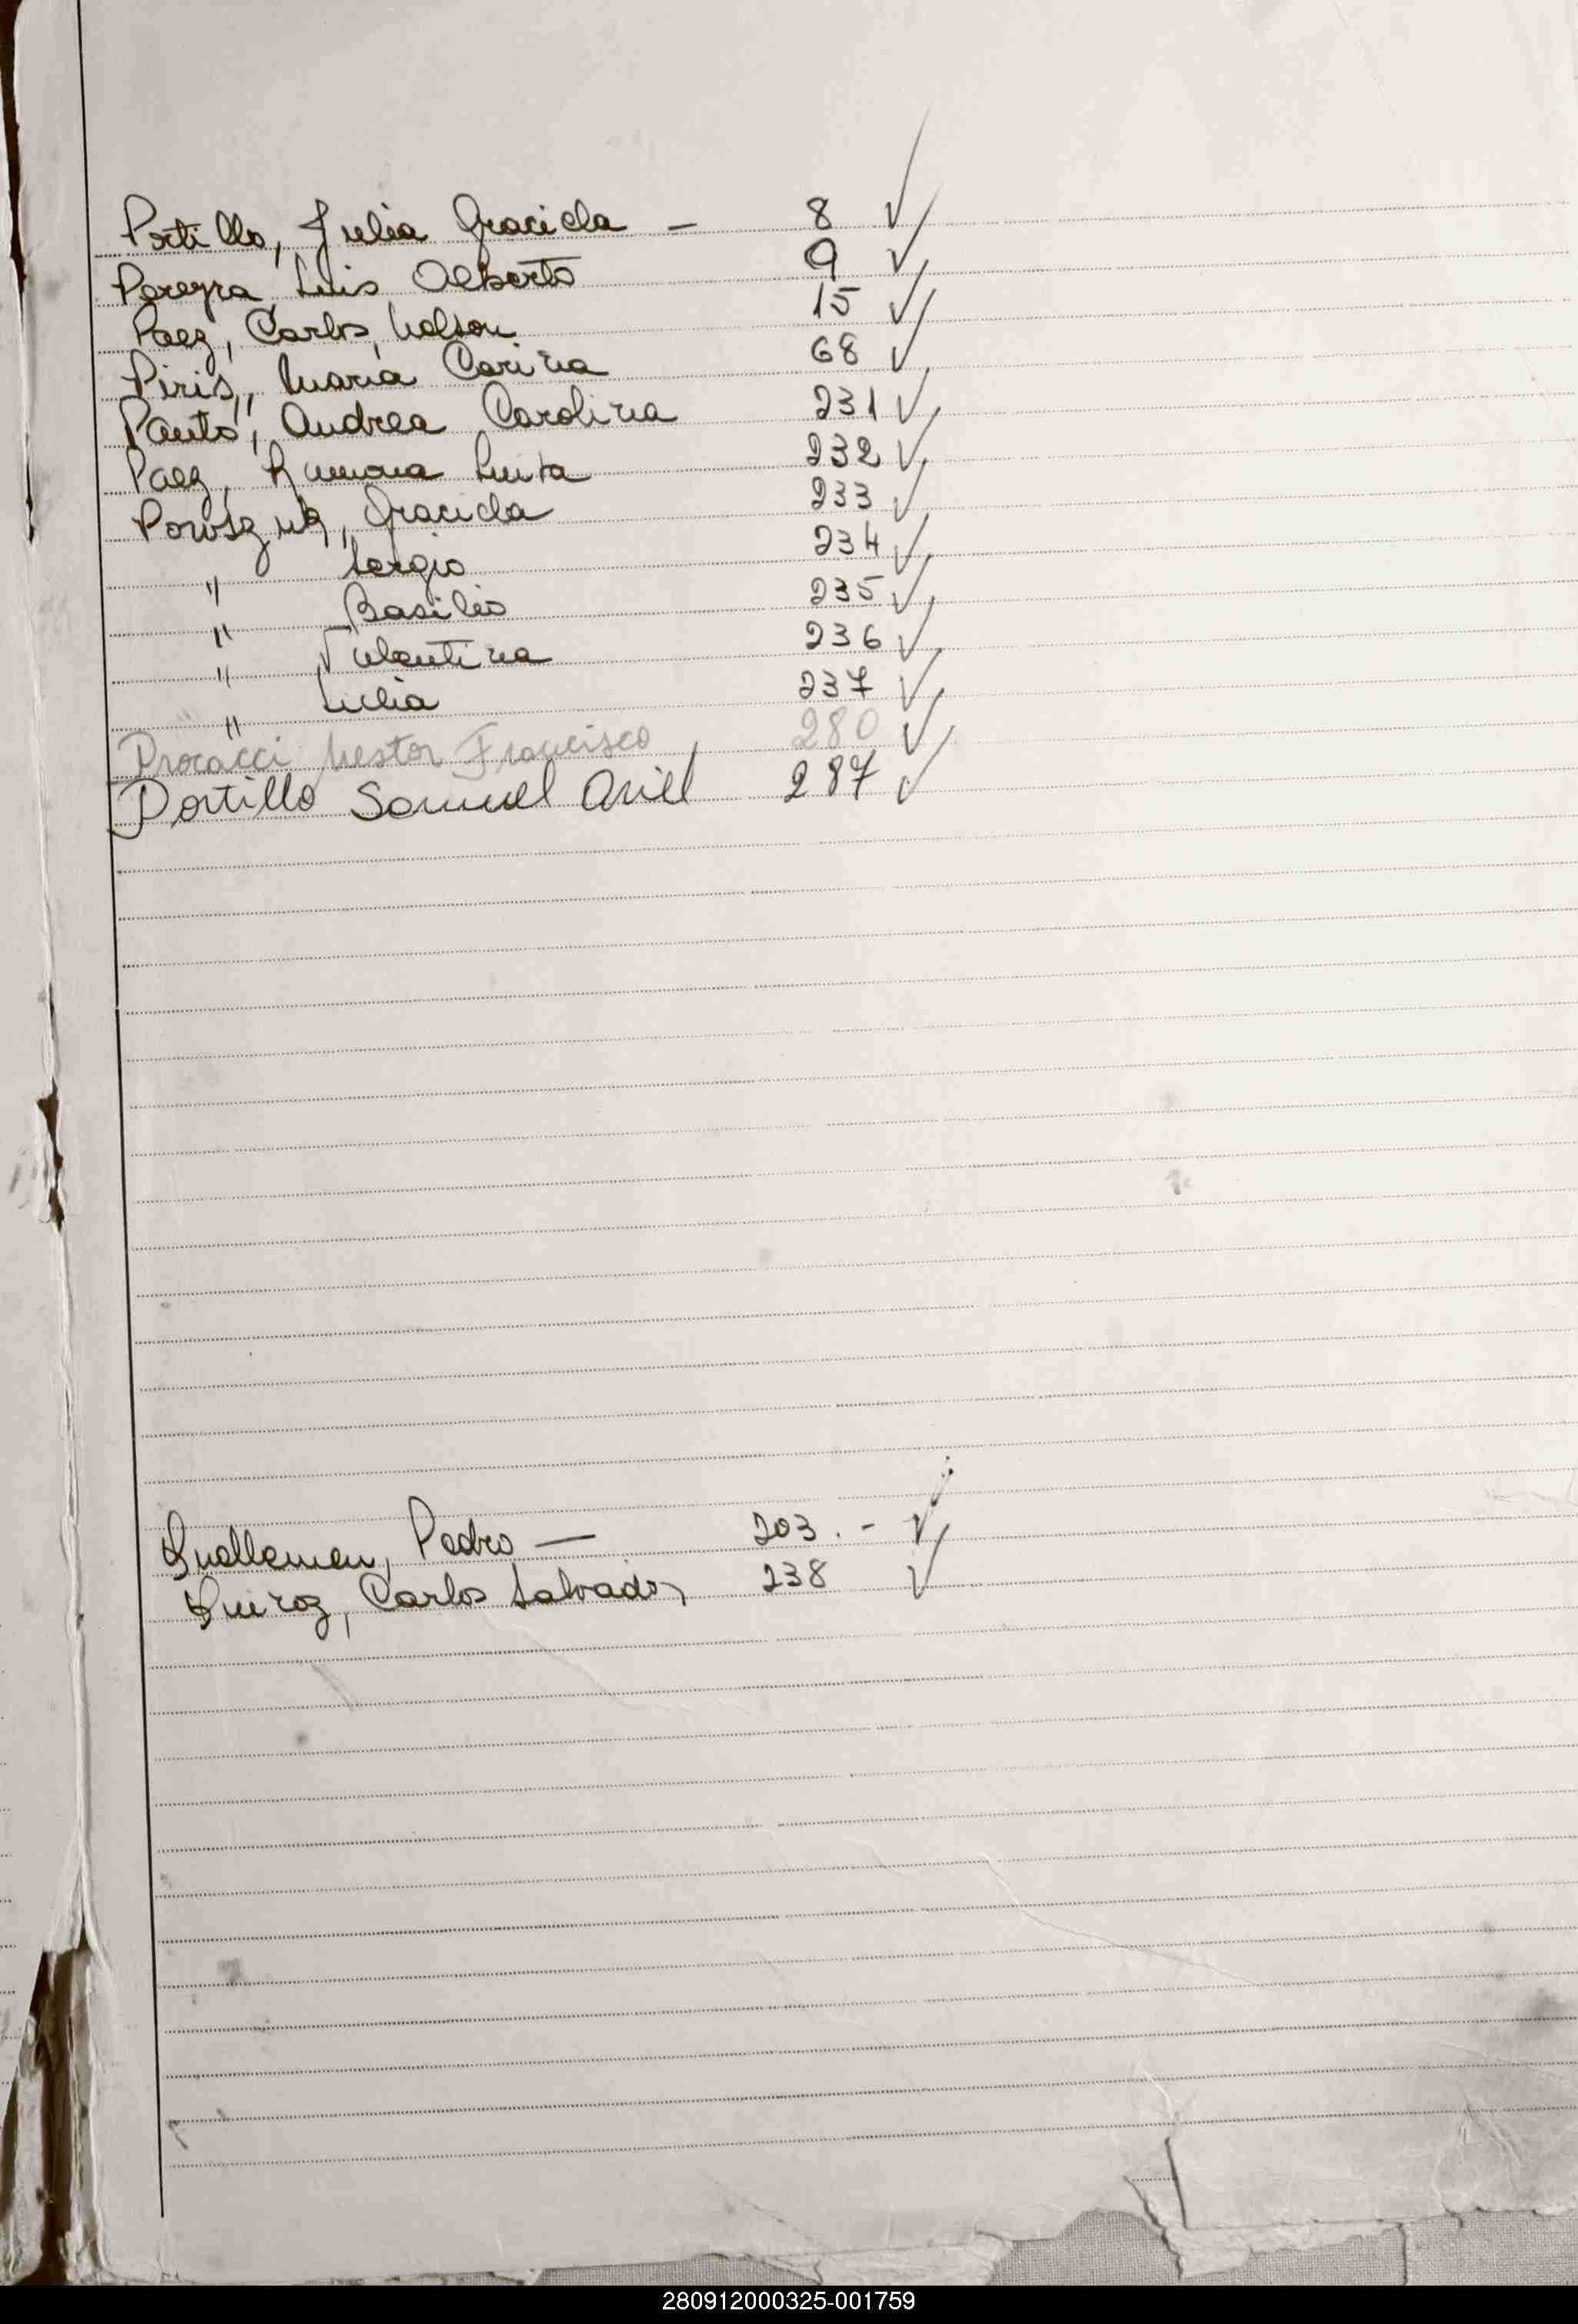 Portillo, Julia Graciela — 8 ✓
Pereyra, Luis Alberto 9 ✓
Paez, Carlos, Nelson 15 ✓
Piris, Maria Carina 68 ✓
Pauto, Andrea Carolina 231 ✓
Paez, Ramona Luisa 232 ✓
Graciela 233 ✓
" Sergio 234 ✓
" Basilio 235 ✓
" Valentina 236 ✓
" Lidia 237 ✓
Procacci Nestor Francisco 280 ✓
Portillo Samuel Ariel 287 ✓
Pedro — 203. - ✓
Quiroz, Carlos Salvador 238 ✓
280912000325-001759